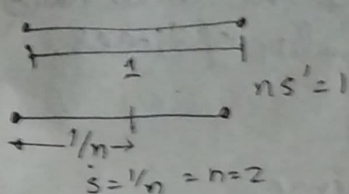 1
ns' = 1
1/n
s = 1/n = n = 2